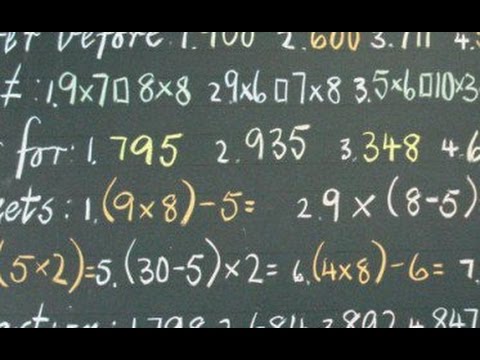 before: 1.700 2.600 3.711 4.
≠: 1.9×7□8×8 2.9×6□7×8 3.5×6□10×3
for: 1.795 2.935 3.348 4.6
1.(9×8)-5= 2.9×(8-5)
(5×2)=5.(30-5)×2= 6.(4×8)-6= 7.
1.798 2.684 3.892 4.847